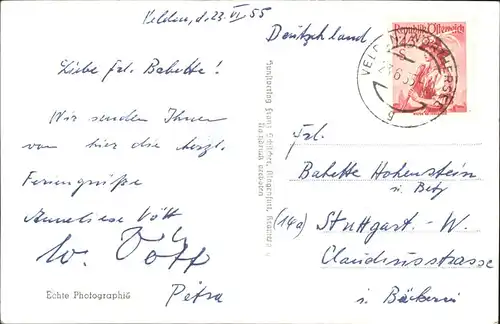 Velden, d. 23. VI. 55
Liebe Frl. Babette!
Wir senden Ihnen
von hier die herzl.
Feriengrüße
Anneliese Vött
W. Vött
Petra
Echte Photographie
Kunstverlag Franz Schilcher, Klagenfurt,
Nachdruck verboten
Deutschland
Republik Österreich
VELDEN
23.6.55
g
Frl.
Babette Hohenstein
(14a) Stuttgart.-W.
Claudiusstrasse
i. Bäckerei